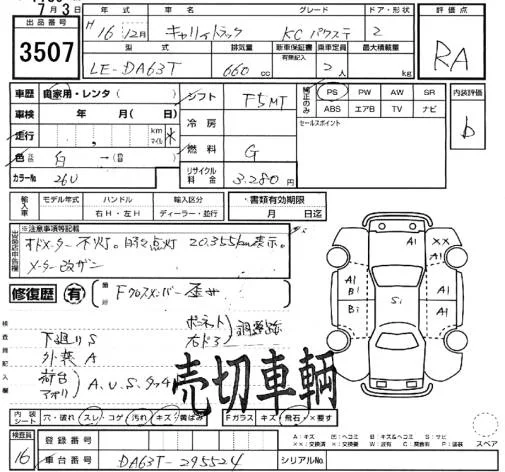 7月3
出品番号 年式 車名 グレード ドア・形状 評価点
3507 H16 12月 キャリィトラック KC パワステ 2 RA
型式 排気量 新車保証書 乗車定員 最大積載量
LE-DA63T 660 cc 有無記入 2人 kg
車歴 自家用・レンタ( ) シフト F5MT 純正のみ PS PW AW SR 内装評価
ABS エアB TV ナビ
車検 年 月(日) 冷房 セールスポイント D
走行 , km マイル ✳
燃料 G
色 白 →( )
カラーNo 26U リサイクル料金 3.280円
輸入車 モデル年式 ハンドル 輸入区分 ※書類有効期限
右H・左H ディーラー・並行 月 日迄
※注意事項等記載
オドメーター不灯。時々点灯 20.355km表示。
メーター改ザン
修復歴 有 箇所 Fクロスメンバー歪サ
検査員記入欄
下廻りS
外装A
荷台 アオリ A.U.S.
ボンネット 右ドア 調整跡
売切車輌
A1 XX A1 A1 A1 B1 B1 A1 S1
内装シート 穴・破れ スレ・コゲ 汚れ キズ・黄ばみ Fガラス キズ 飛石・×要す
検査員 16 登録番号
車台番号 DA63T-295524 シリアルNo.
A:キズ E:エヘコミ B:キズ&ヘコミ S:サビ
スペア